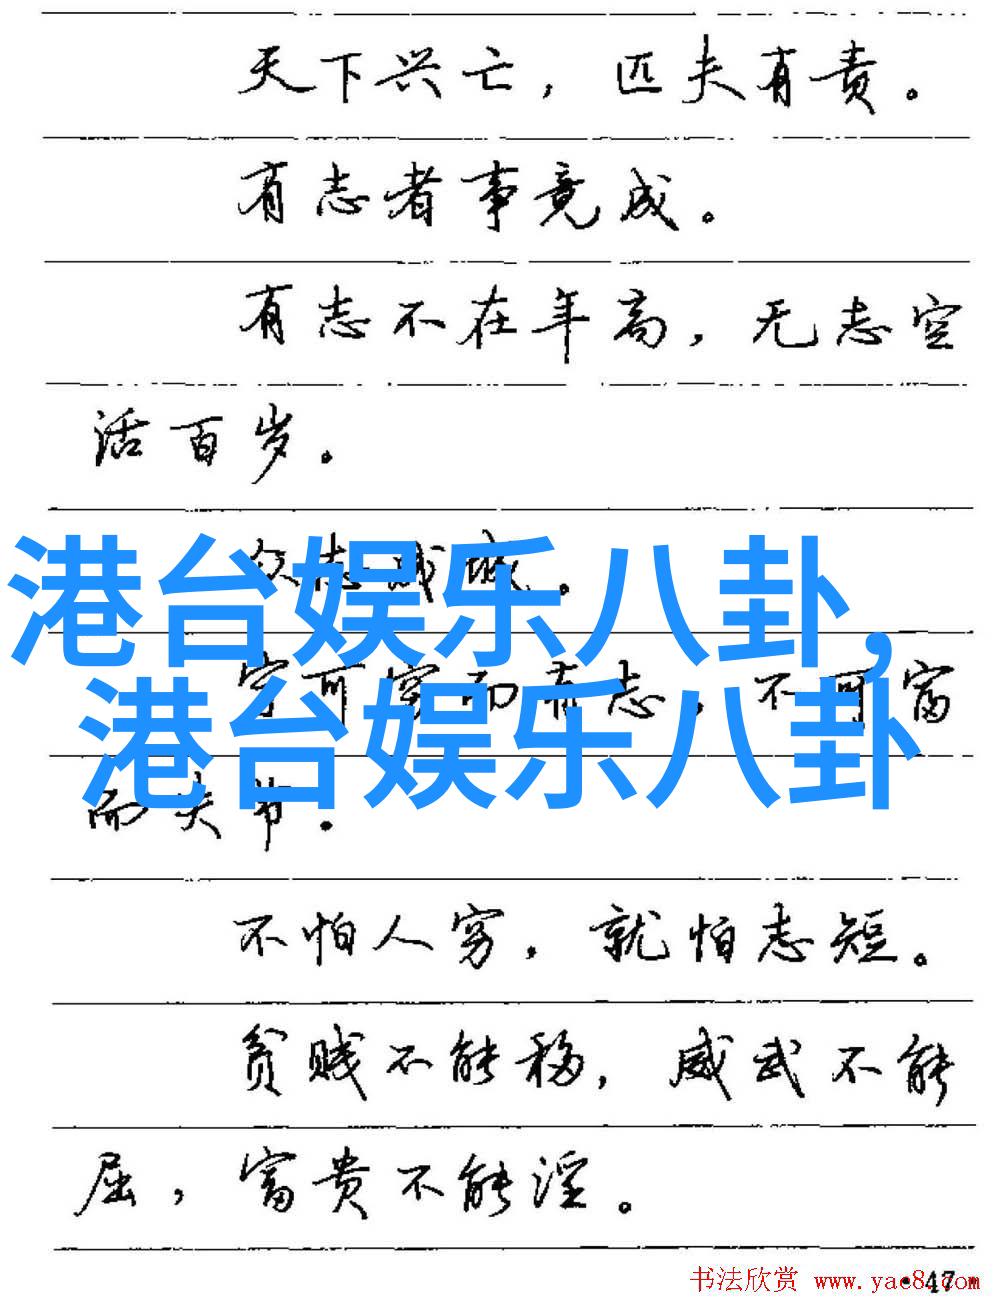 天下兴亡，匹夫有责。
有志者事竟成。
有志不在年高，无志空
活百岁。
众志成城。
港台娱乐八卦,
宁可穷而有志，不可富
港台娱乐八卦
而失节.
不怕人穷，就怕志短。
贫贱不能移，威武不能
屈，富贵不能淫。
书法欣赏 www.yac8.com
·47·